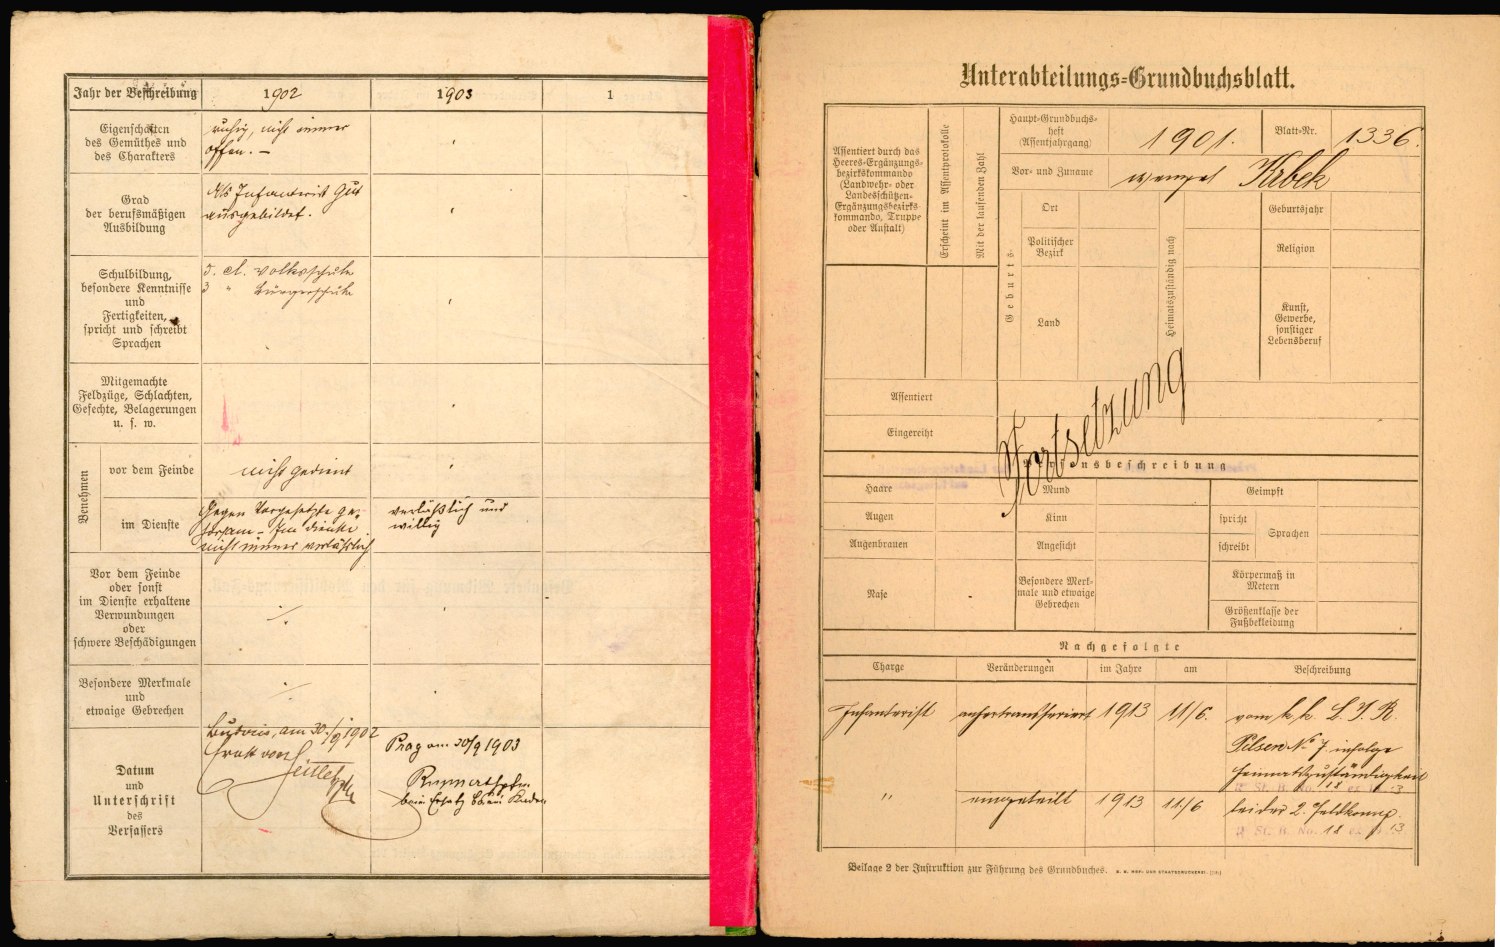 Jahr der Beschreibung
1902
1903
1
Eigenschaften
des Gemüthes und
des Charakters
ruhig, nicht immer
offen. –
Grad
der berufsmäßigen
Ausbildung
Als Infanterist gut
ausgebildet.
Schulbildung,
besondere Kenntnisse
und
Fertigkeiten,
spricht und schreibt
Sprachen
5. cl. Volksschule
3 " Bürgerschule
Mitgemachte
Feldzüge, Schlachten,
Gefechte, Belagerungen
u. s. w.
Benehmen
vor dem Feinde
nicht gedient
im Dienste
Gegen Vorgesetzte ge-
horsam – Im Dienste
nicht immer verläßlich
verläßlich und
willig
Vor dem Feinde
oder sonst
im Dienste erhaltene
Verwundungen
oder
schwere Beschädigungen
Besondere Merkmale
und
etwaige Gebrechen
Datum
und
Unterschrift
des
Verfassers
Budweis, am 30./9 1902
Prag am 30/9 1903
Unterabteilungs-Grundbuchsblatt.
Assentiert durch das
Heeres-Ergänzungs-
bezirkskommando
(Landwehr- oder
Landesschützen-
Ergänzungsbezirks-
kommando, Truppe
oder Anstalt)
Erscheint im Assentprotokolle
Mit der laufenden Zahl
Haupt-Grundbuchs-
heft
(Assentjahrgang)
1901.
Blatt-Nr.
1336.
Vor- und Zuname
Wenzel Krbek
Geburts-
Ort
Politischer
Bezirk
Land
Heimatszuständig nach
Geburtsjahr
Religion
Kunst,
Gewerbe,
sonstiger
Lebensberuf
Assentiert
Eingereiht
Fortsetzung
Personsbeschreibung
Haare
Mund
Geimpft
Augen
Kinn
spricht
Sprachen
Augenbrauen
Angesicht
schreibt
Nase
Besondere Merk-
male und etwaige
Gebrechen
Körpermaß in
Metern
Größenklasse der
Fußbekleidung
Nachgefolgte
Charge
Veränderungen
im Jahre
am
Beschreibung
Infanterist
anhertransferiert
1913
11/6.
vom k. k. L. I. R.
Pilsen No 7 infolge
Heimatszuständigkeit
St. B. No. 18 ex 1913
"
eingeteilt
1913
11/6
bei der 2. Feldkomp.
St. B. No. 18 ex 1913
Beilage 2 der Instruktion zur Führung des Grundbuches. K. K. HOF- UND STAATSDRUCKEREI.